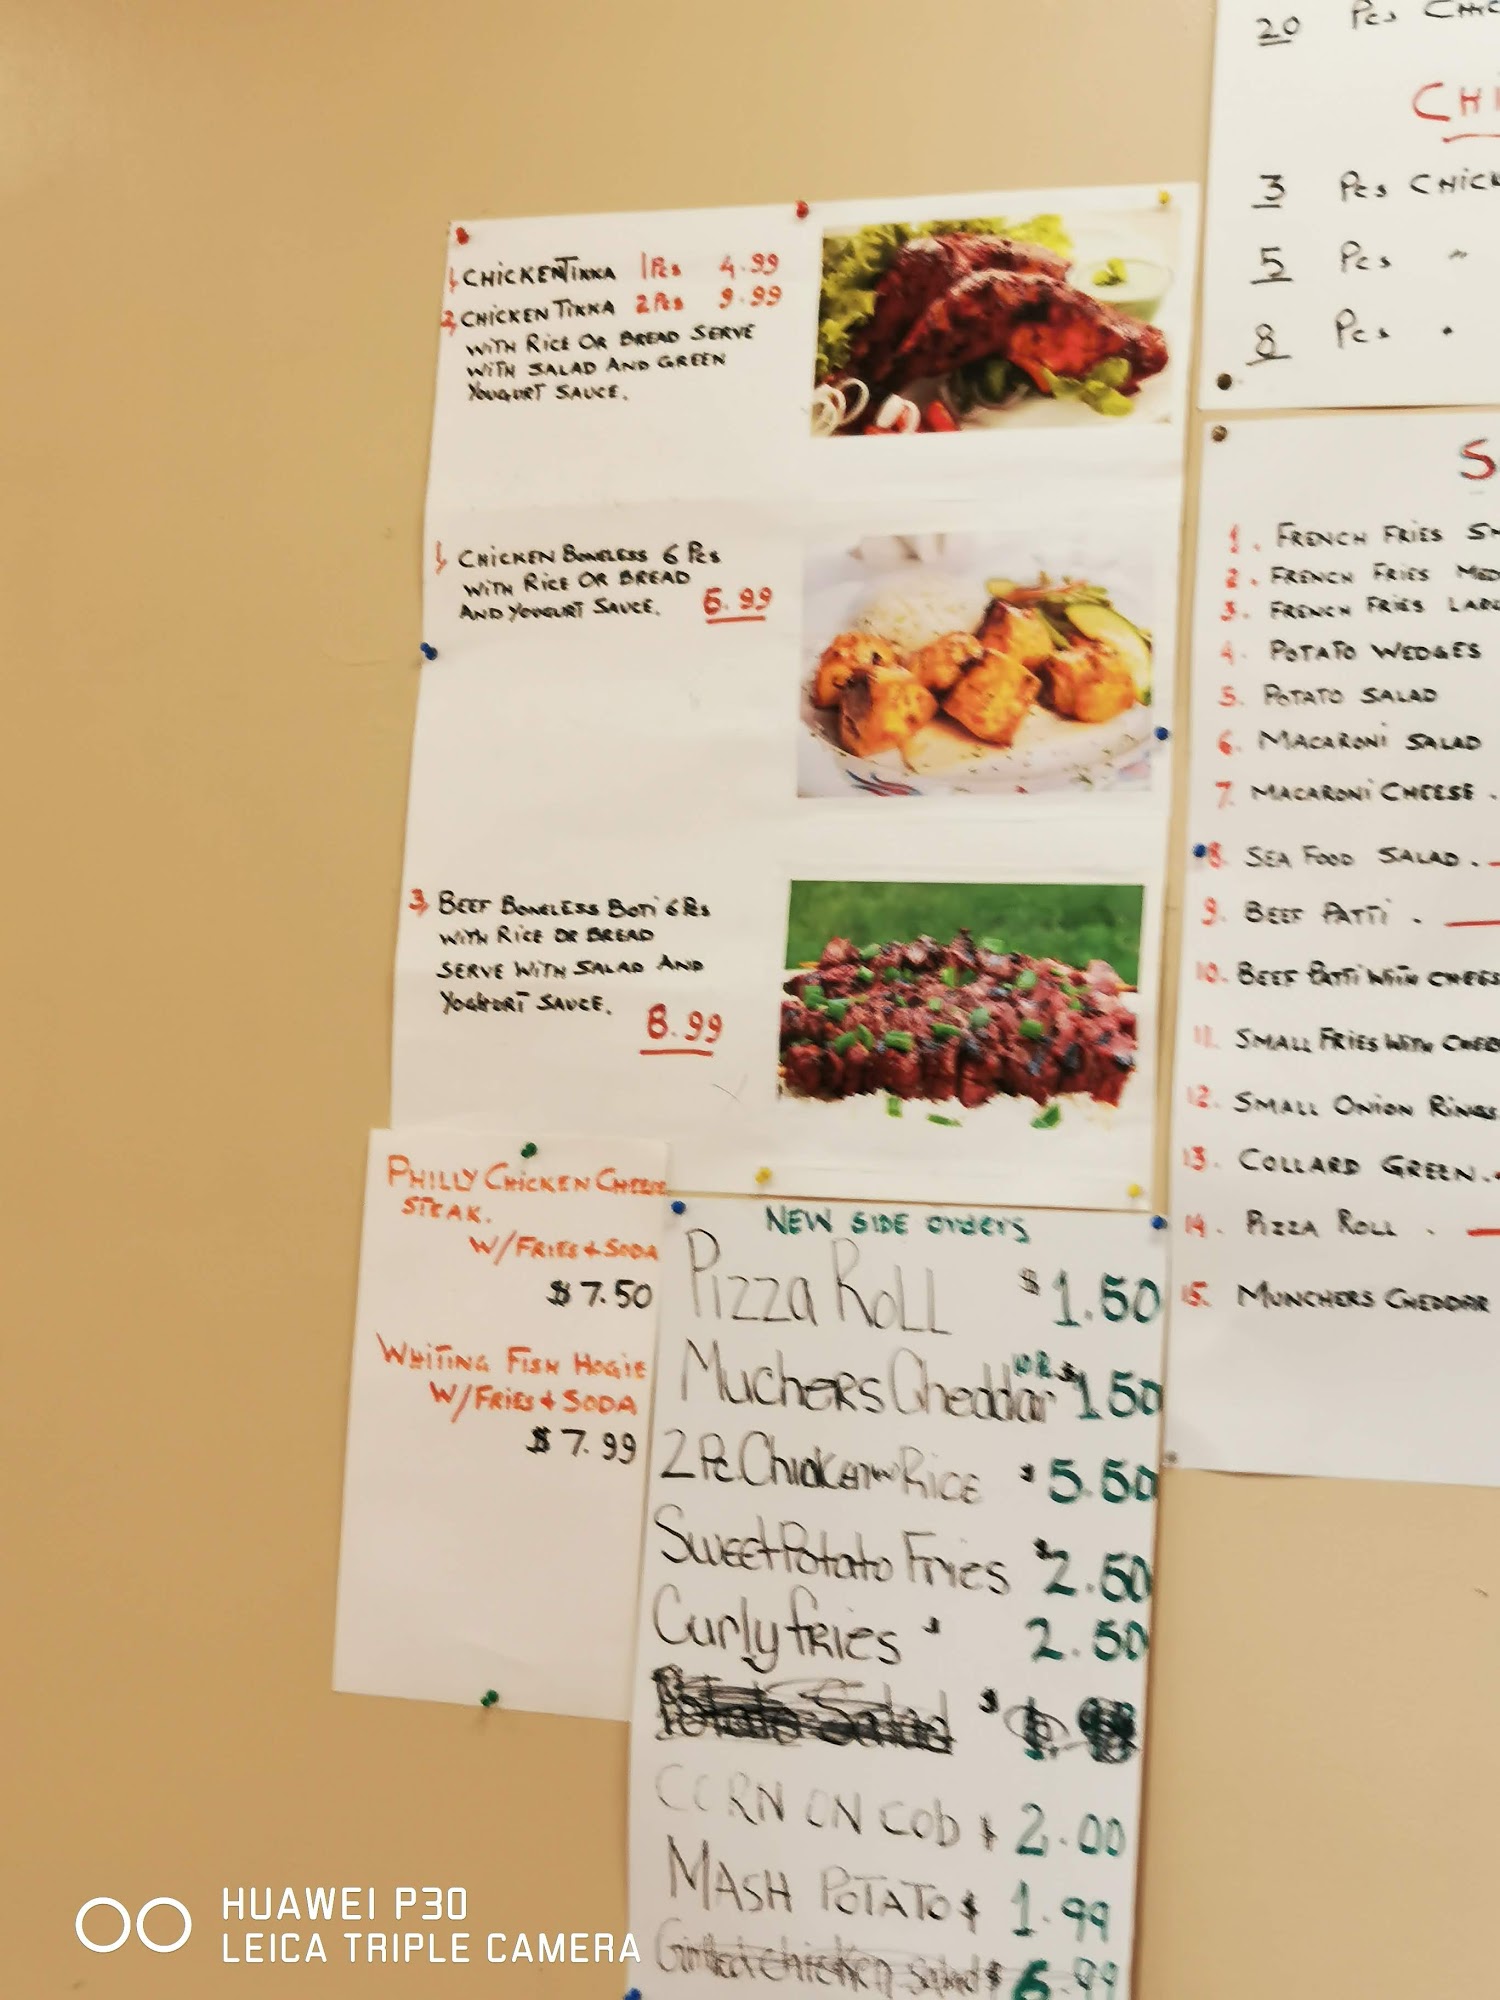 1, CHICKEN TIKKA 1 Pcs 4.99
2, CHICKEN TIKKA 2 Pcs 9.99
WITH RICE OR BREAD SERVE
WITH SALAD AND GREEN
YOUGURT SAUCE.
1, CHICKEN BONELESS 6 Pcs
WITH RICE OR BREAD
AND YOUGURT SAUCE. 6.99
3, BEEF BONELESS BOTI 6 Pcs
WITH RICE OR BREAD
SERVE WITH SALAD AND
YOGHURT SAUCE.
8.99
PHILLY CHICKEN CHEESE
STEAK.
W/FRIES & SODA
$ 7.50
WHITING FISH HOGIE
W/FRIES & SODA
$ 7.99
NEW SIDE orders
Pizza Roll $1.50
Muchers Cheddar $1.50
2 Pc. Chicken w Rice $5.50
Sweet Potato Fries $2.50
Curly fries $ 2.50
CORN ON COB $ 2.00
MASH POTATO $ 1.99
Grilled chicken salad $ 6.99
20 Pcs
3 Pcs
5 Pcs "
8 Pcs "
1. FRENCH FRIES
2. FRENCH FRIES
3. FRENCH FRIES
4. POTATO WEDGES
5. POTATO SALAD
6. MACARONI SALAD
7. MACARONI CHEESE .
8. SEA FOOD SALAD .
9. BEEF PATTI .
10. BEEF PATTI WITH
11. SMALL FRIES WITH
12. SMALL ONION RINGS
13. COLLARD GREEN .
14. PIZZA ROLL .
15. MUNCHERS CHEDDAR
HUAWEI P30
LEICA TRIPLE CAMERA